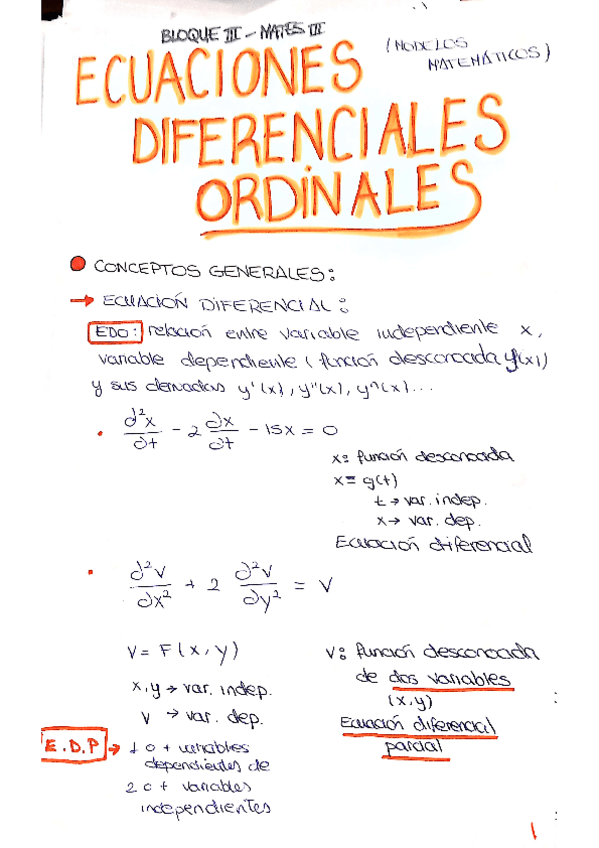 BLOQUE III - MATES III
(MODELOS MATEMÁTICOS)
ECUACIONES
DIFERENCIALES
ORDINALES
CONCEPTOS GENERALES:
→ ECUACIÓN DIFERENCIAL:
EDO: relación entre variable independiente x,
variable dependiente (función desconocida y(x))
y sus derivadas y'(x), y''(x), yⁿ(x)...
• ∂²x/∂t - 2 ∂x/∂t - 15x = 0
x: función desconocida
x = g(t)
t → var. indep.
x → var. dep.
Ecuación diferencial
• ∂²V/∂x² + 2 ∂²V/∂y² = V
V = F(x,y)
x,y → var. indep.
V → var. dep.
V: función desconocida
de dos variables
(x,y)
Ecuación diferencial
parcial
E.D.P → 1 o + variables
dependientes de
2 o + variables
independientes
1